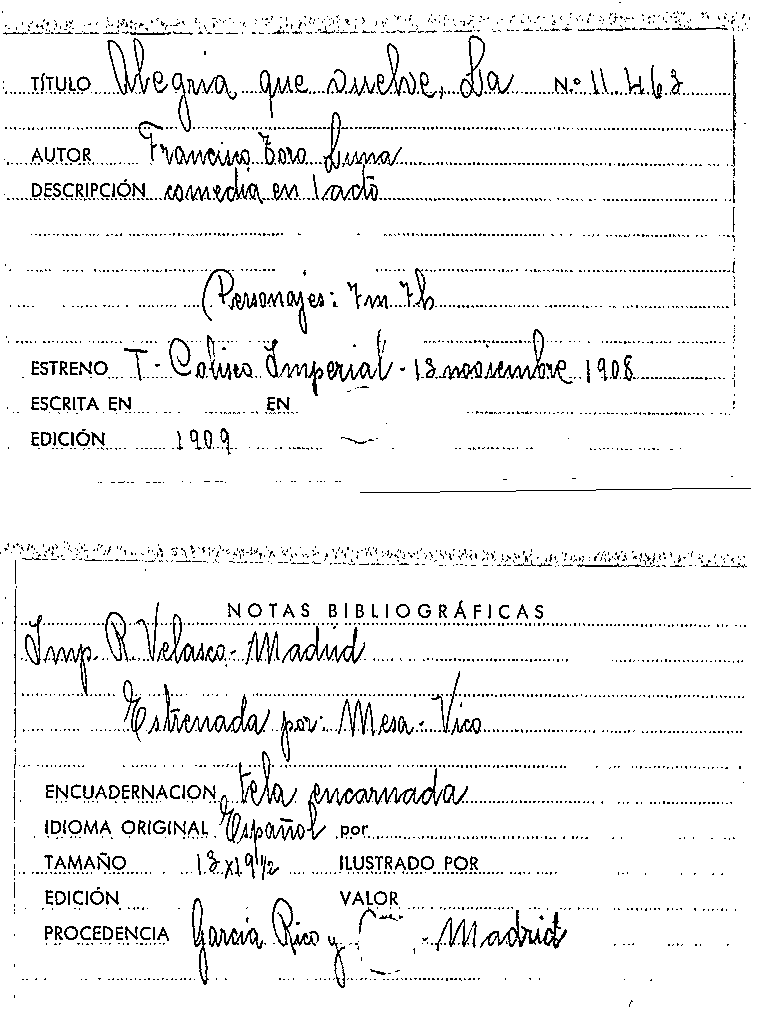 TÍTULO Alegria que vuelve, La N.º 11.463
AUTOR Francisco Toro Luna
DESCRIPCIÓN comedia en 1 acto
(Personajes: 7m 7h
ESTRENO T - Coliseo Imperial - 13 noviembre 1908
ESCRITA EN EN
EDICIÓN 1909
NOTAS BIBLIOGRÁFICAS
Imp. R. Velasco - Madrid
Estrenada por: Mesa - Vico
ENCUADERNACION tela encarnada
IDIOMA ORIGINAL Español por
TAMAÑO 13 x 19 1/2 ILUSTRADO POR
EDICIÓN VALOR
PROCEDENCIA Garcia Rico y - Madrid